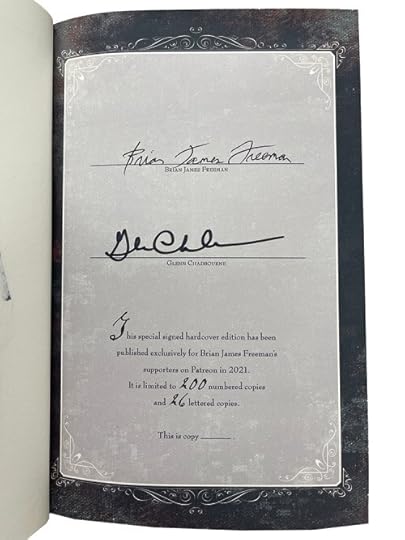 Brian James Freeman
BRIAN JAMES FREEMAN
GLENN CHADBOURNE
This special signed hardcover edition has been
published exclusively for Brian James Freeman's
supporters on Patreon in 2021.
It is limited to 200 numbered copies
and 26 lettered copies.
This is copy ______ .